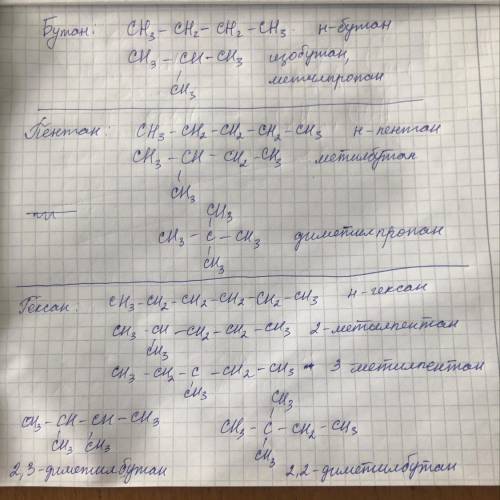 Бутан: CH₃ – CH₂ – CH₂ – CH₃ н-бутан
CH₃ – CH – CH₃ изобутан,
CH₃ метилпропан
Пентан: CH₃ – CH₂ – CH₂ – CH₂ – CH₃ н-пентан
CH₃ – CH – CH₂ – CH₃ метилбутан
CH₃
CH₃
CH₃ – C – CH₃ диметилпропан
CH₃
Гексан: CH₃ – CH₂ – CH₂ – CH₂ – CH₂ – CH₃ н-гексан
CH₃ – CH – CH₂ – CH₂ – CH₃ 2-метилпентан
CH₃
CH₃ – CH₂ – C – CH₂ – CH₃ 3 метилпентан
CH₃
CH₃
CH₃ – CH – CH – CH₃ CH₃ – C – CH₂ – CH₃
CH₃ CH₃ CH₃
2,3-диметилбутан 2,2-диметилбутан